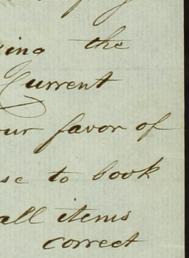 ing the
Current
our favor of
se to book
all items
correct